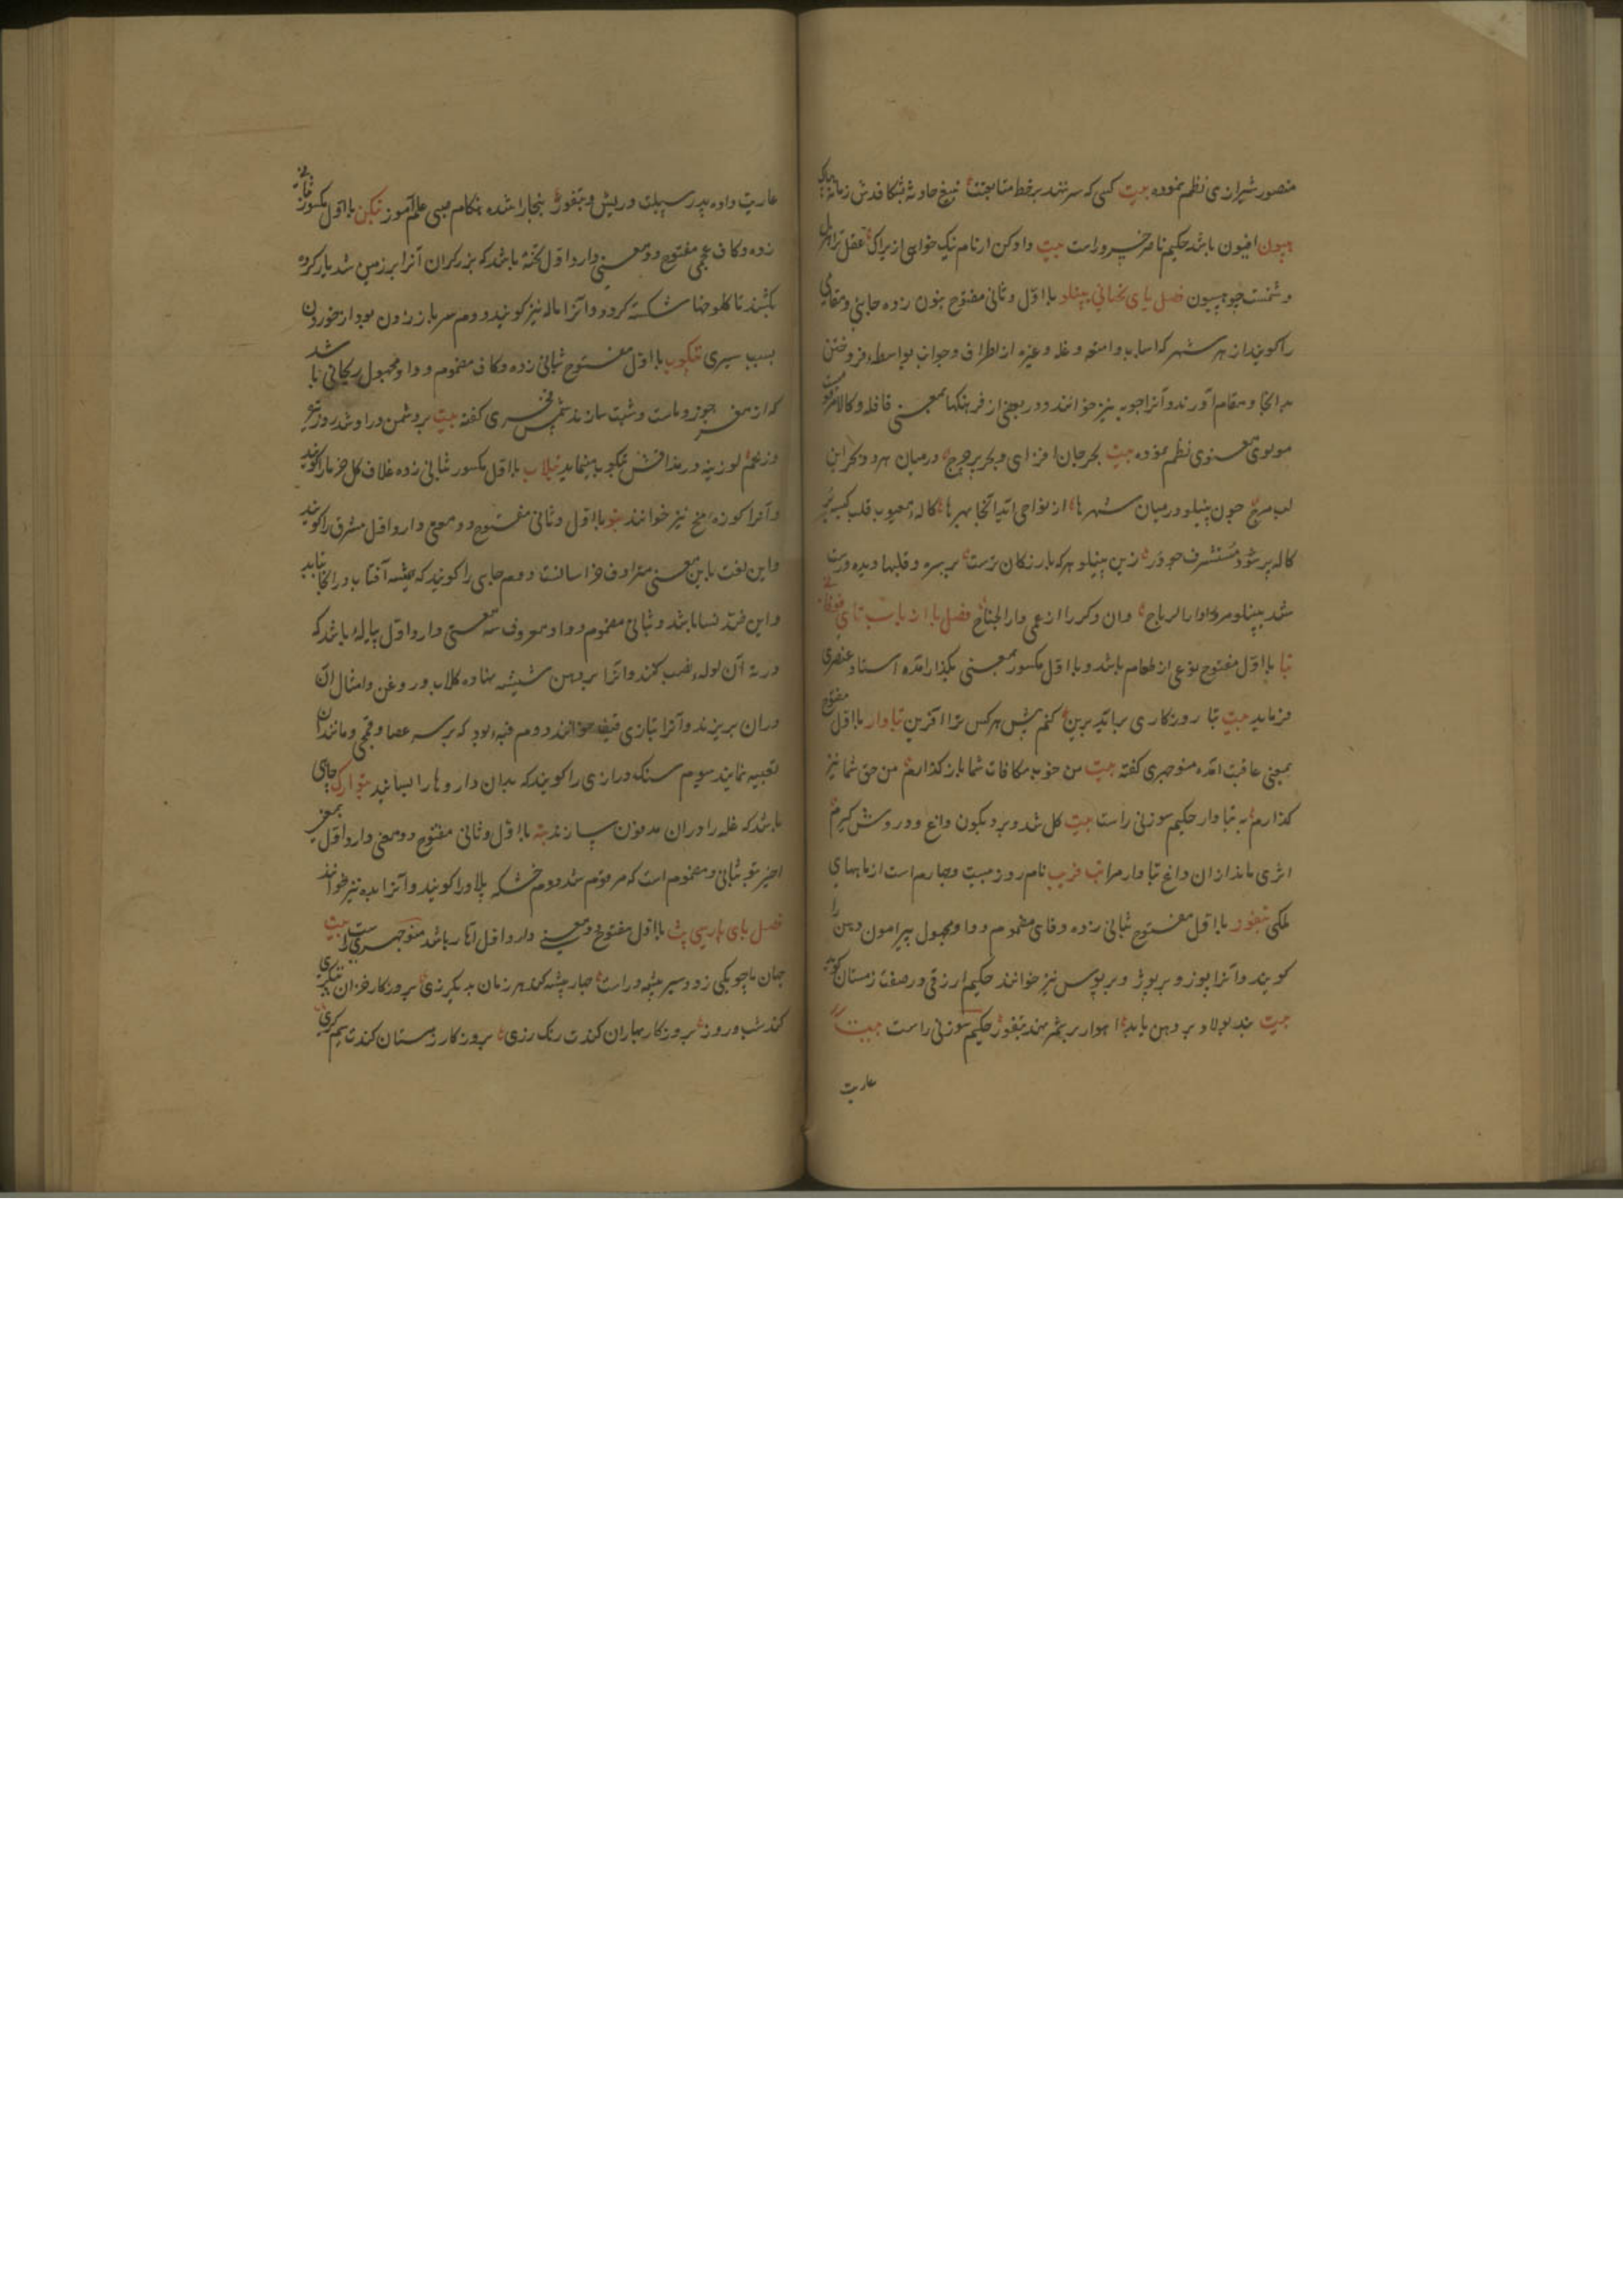 منصور شیرازی نظم نموده بیت کسی که سر ننهد بر خط متابعتت تیغ حادثه بشکافدش زمانه
هپیون افیون باشد حکیم ناصر خسرو راست بیت وادکن ار نام نیک خواهی ازیراک عقل ترا
و شخست چو هپیون فصل یای تحتانی یبنلو با اول و ثانی مفتوح بنون زده جایی و مقامی
را گویند از هر شهر که اسباب و امتعه و غله و غیره از اطراف و جوانب بواسطه فروختن
بدانجا و مقام آورند و آنرا جوبه نیز خوانند و در بعضی از فرهنگها بمعنی قافله و کالا مرقوم
مولوی معنوی نظم نموده بیت بحر جان افزای و بحر پر حرج در میان هر دو بحر این
لب مرج چون یبنلو در میان شهرها از نواحی آید آنجا بهرها کاله معیوب قلب کیسه بر
کاله پر سود مستشرف چو در زین یبنلو هر که بازرگان ترست بر سره و قلبها دیده ورست
شد یبنلو مر ورا دار الرباح وان دگر را از عمی دار الجناح فصل با از باب تای فوقانی
تبا با اول مفتوح نوعی از طعام باشد و با اول مکسور بمعنی بگذار آمده استاد عنصری
فرماید بیت تبا روزگاری برآید برین کنم پیش هر کس ترا آفرین تباوار با اول مفتوح
بمعنی عاقبت آمده منوچهری گفته بیت من خوبد مکافات شما باز گذارم من حق شما نیز
گذارم به تباوار حکیم سوزنی راست بیت کل شد و برد بکون داغ و دروش گیرم
اثری ماند ازان داغ تباوار مرا تب فریب نام روز بیست و چهارم است از ماههای
ملکی تبفوز با اول مفتوح بثانی زده و فای مضموم و واو مجهول پیرامون دهن را
گویند و آنرا پوز و بر پوز و بر پوس نیز خوانند حکیم ازرقی در صفت زمستان گوید
بیت بند پولاد بر دهن یابد اهوار بر شمر نهد تبفوز حکیم سوزنی راست بیت
عاریت
عاریت داده بدر سبلت و ریش و تبفوز بنجارا شده هنگام صبی علم آموز تبکن با اول مکسور بثانی
زده و کاف عجمی مفتوح دو معنی دارد اول تخته باشد که بزرگران آنرا بر زمین شد یار کرده
بکشند تا کلوخها شکسته گردد و آنرا ماله نیز گویند دوم سر باز زدن بود از خوردن
بسبب سیری تبکوب با اول مفتوح بثانی زده و کاف مضموم و واو مجهول ریچالی باشد
که از مغز جوز و ماست و شبت سازند شمس فخری گفته بیت بر دشمن درا و شد روز تیره
وز غم لوزینه در مذاقش تبکوب مینماید تبلاب با اول مکسور بثانی زده غلاف گل خرما را گویند
و آنرا کوزه نخ نیز خوانند تبو با اول و ثانی مفتوح دو معنی دارد اول مشرق را گویند
و این لغت باین معنی مترادف خراسانست دوم جای را گویند که همیشه آفتاب در آنجا بتابد
و این ضد نسا باشد و ثانی مضموم و واو معروف سه معنی دارد اول پیاله باشد که
در ته آن لوله نصب کنند و آنرا بر دهن شیشه نهاده گلاب و روغن و امثال آن
دران بریزند و آنرا بتازی قیف خوانند دوم قبه بود که بر سر عصا و قمچی و مانند آن
تعبیه نمایند سیوم سنگ درازی را گویند که بدان داروها را بسایند تبوارک جای
باشد که غله را دران مدفون سازند تبه با اول و ثانی مفتوح دو معنی دارد اول بمعنی
اخیر تبو بثانی و مضموم است که مرقوم شد دوم خشکه پلاو را گویند و آنرا بده نیز خوانند
فصل بای پارسی تپ با اول مفتوح دو معنی دارد اول آثار باشد منوچهری راست بیت
جهان ما چو یکی زود سیر پیشه ورست چهار پیشه کند هر زمان بدیگر زی بروزگار خزان زرگری
کند شب و روز بروزگار بهاران کندت رنگ رزی بروزگار زمستان کندت سیمگری